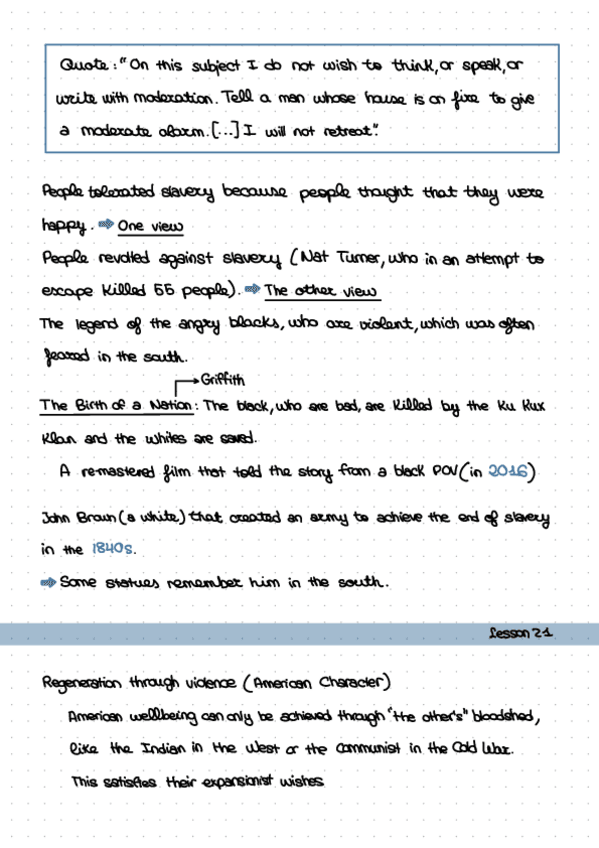 Quote: "On this subject I do not wish to think, or speak, or
write with moderation. Tell a man whose house is on fire to give
a moderate alarm. [...] I will not retreat".
People tolerated slavery because people thought that they were
happy. ➡ One view
People revolted against slavery (Nat Turner, who in an attempt to
escape killed 55 people). ➡ The other view
The legend of the angry blacks, who are violent, which was often
feared in the south.
Griffith
The Birth of a Nation: The black, who are bad, are killed by the Ku Kux
Klan and the whites are saved.
A remastered film that told the story from a black POV (in 2016)
John Braun (a white) that created an army to achieve the end of slavery
in the 1840s.
➡ Some statues remember him in the south.
Lesson 21
Regeneration through violence (American Character)
American wellbeing can only be achieved through "the other's" bloodshed,
like the Indian in the West or the Communist in the Cold War.
This satisfies their expansionist wishes